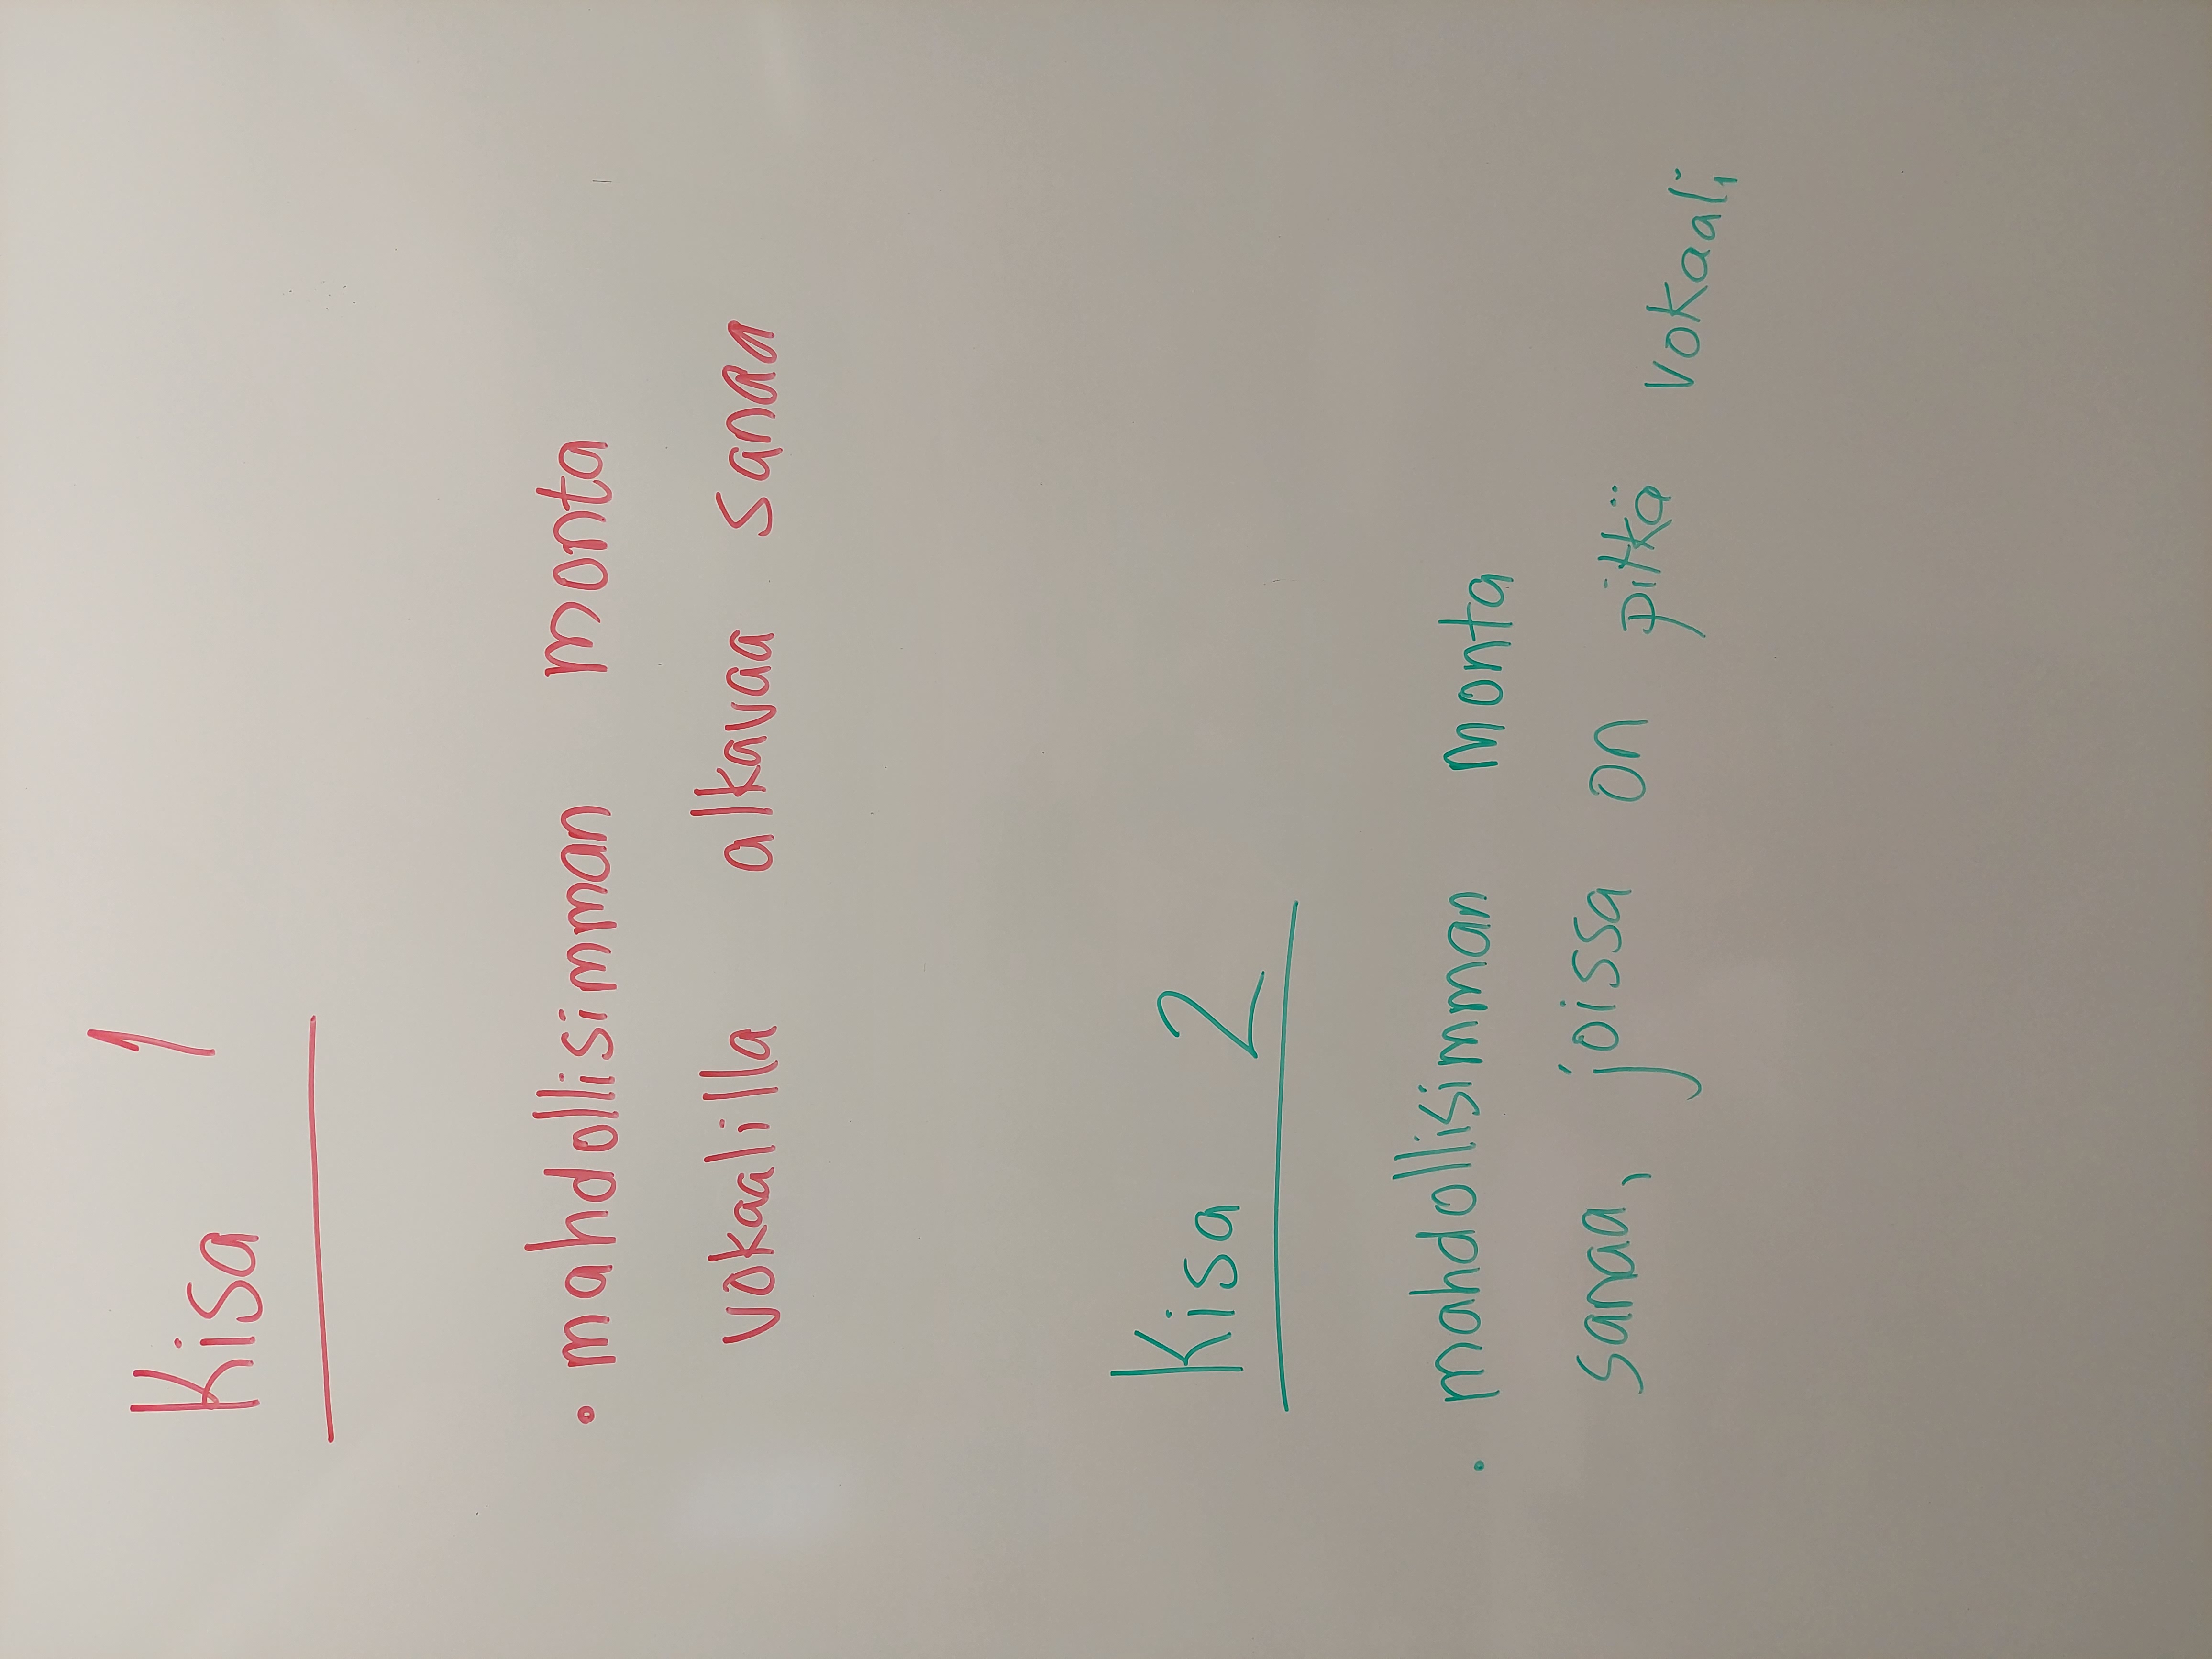 Kisa 1
• mahdollisimman monta
vokaalilla alkavaa sanaa
Kisa 2
• mahdollisimman monta
sanaa, joissa on pitkä vokaali